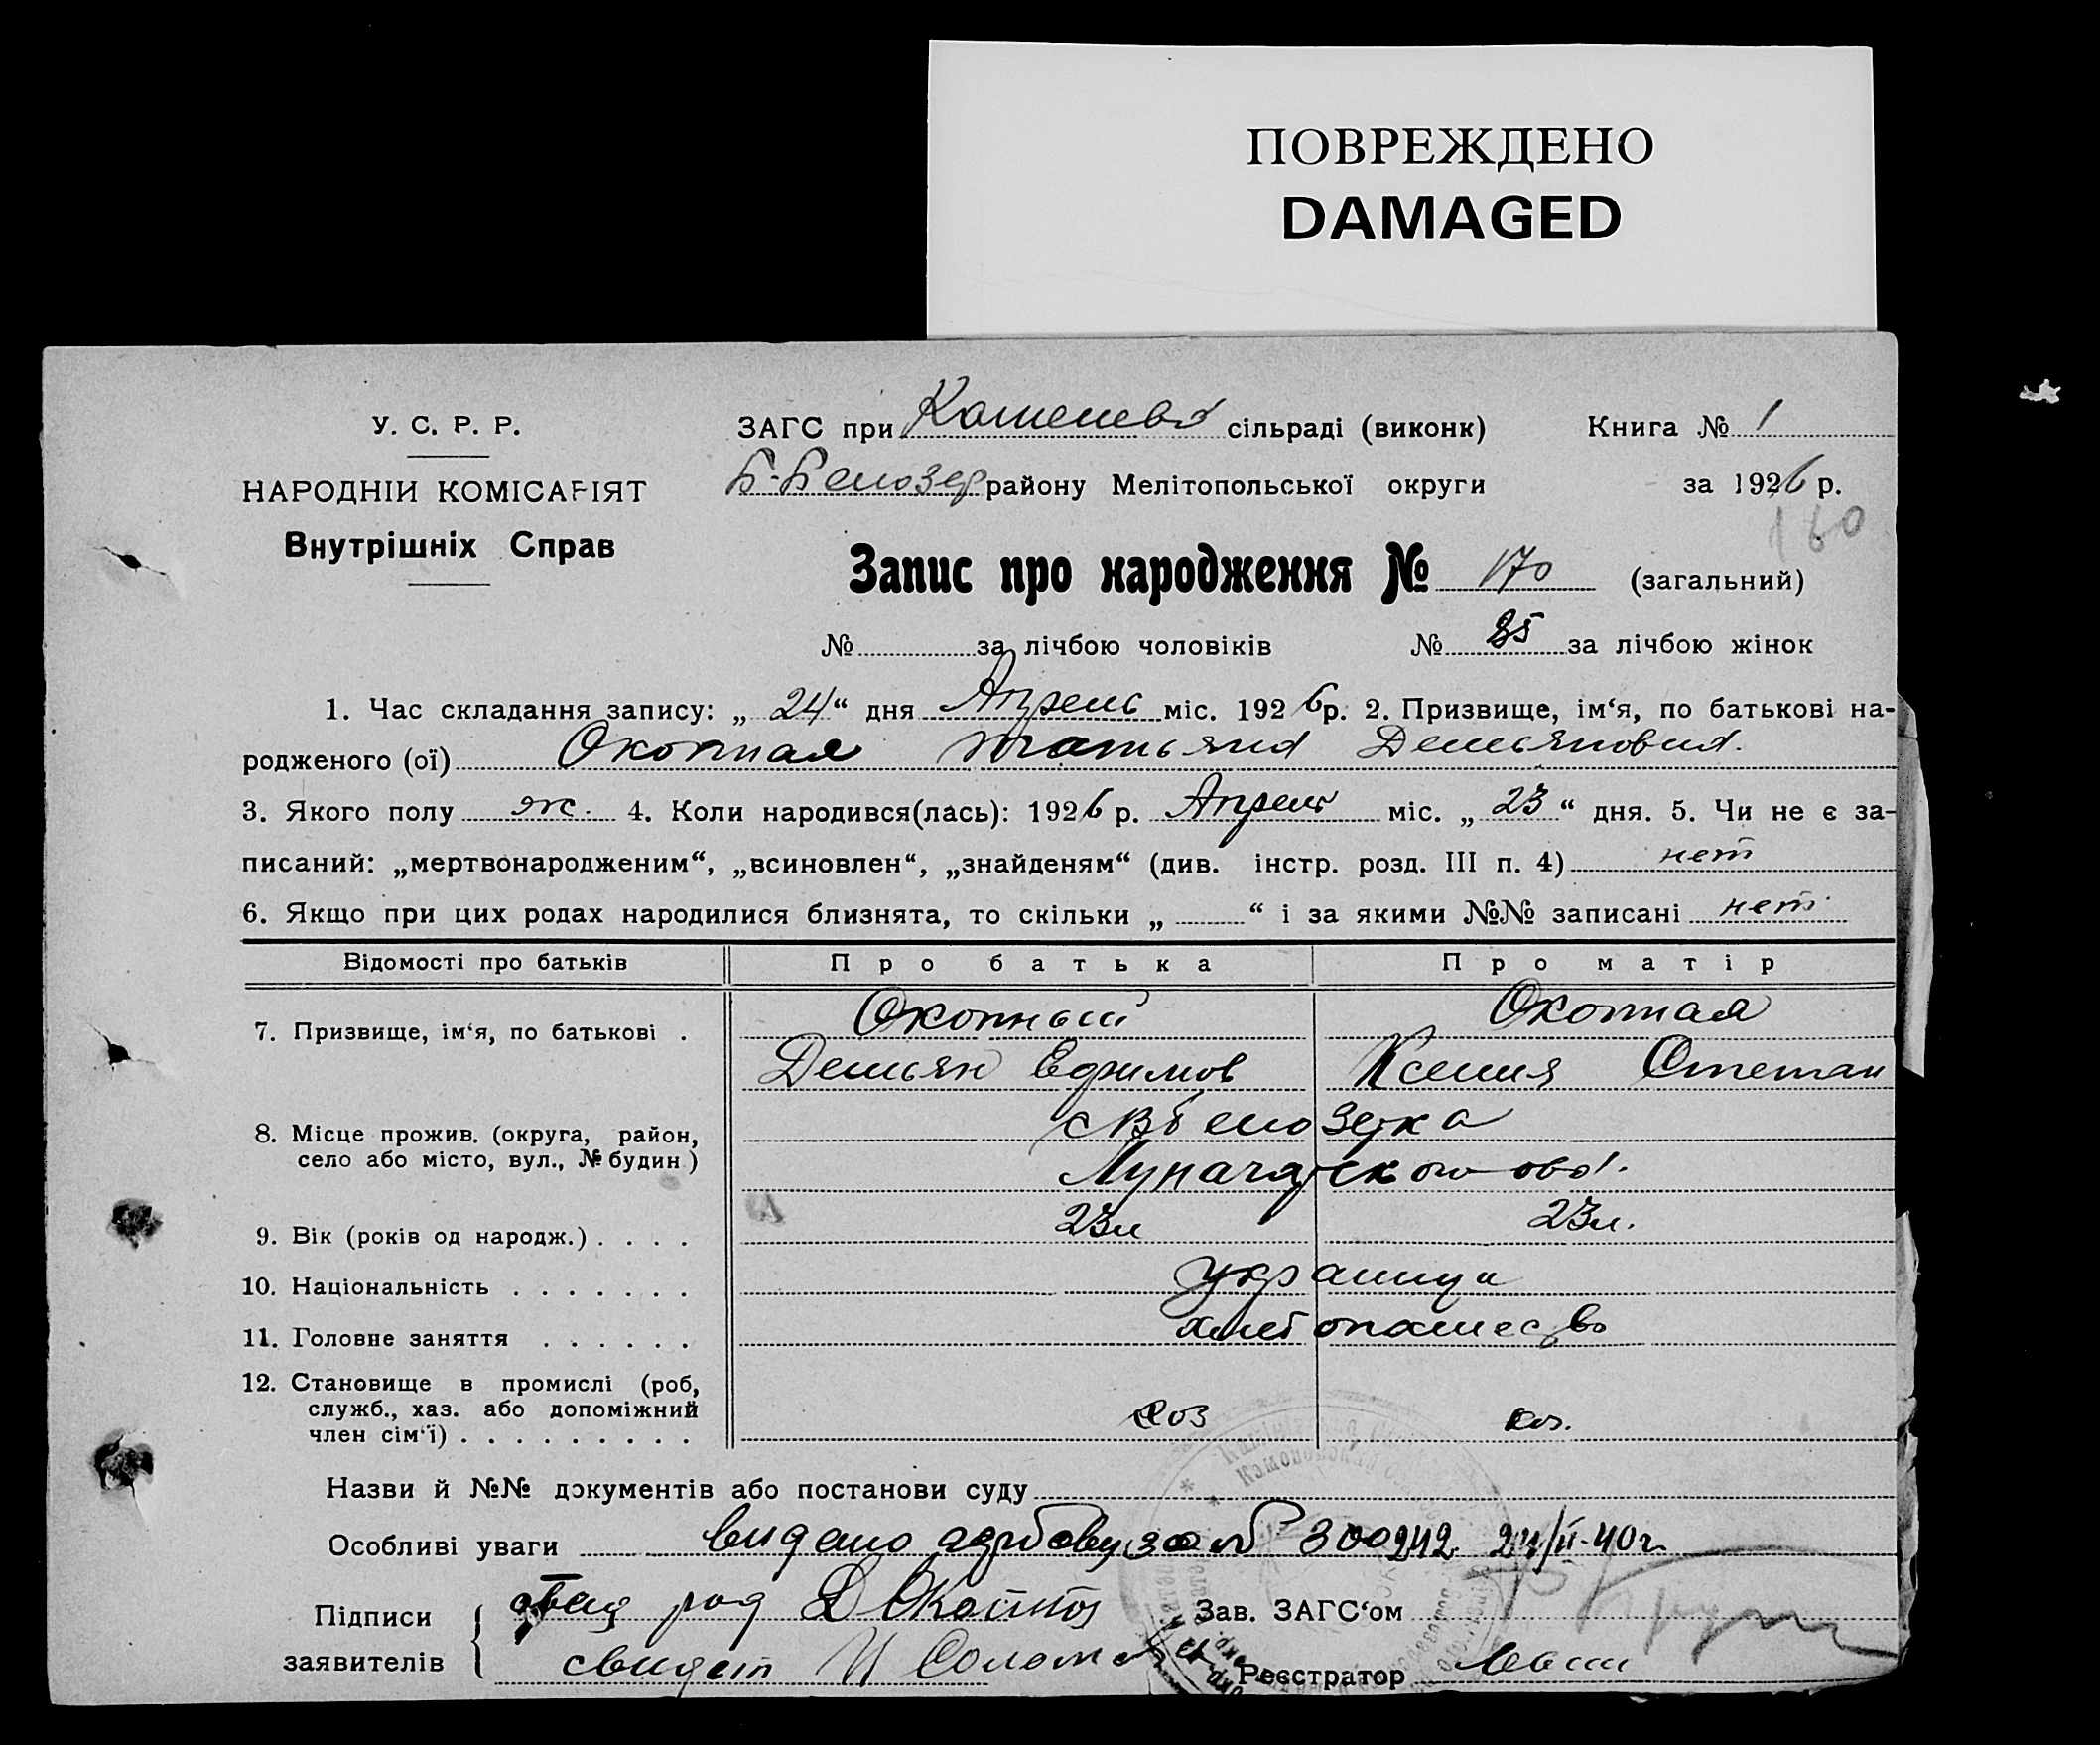 ПОВРЕЖДЕНО
DAMAGED
У. С. Р. Р.
НАРОДНІЙ КОМІСАРІЯТ
Внутрішніх Справ
ЗАГС при сільраді (виконк) Книга № 1
Б-Белозер району Мелітопольської округи за 1926 р.
160
Запис про народження № 170 (загальний)
№ за лічбою чоловіків № 85 за лічбою жінок
1. Час складання запису: „ 24 “ дня Апрель міс. 1926 р. 2. Призвище, ім‘я, по батькові на-
родженого (ої) Окопная Татьяна Демьяновна.
3. Якого полу ж. 4. Коли народився(лась): 1926 р. Апрель міс. „ 23 “ дня. 5. Чи не є за-
писаний: „мертвонародженим“, „всиновлен“, „знайденям“ (див. інстр. розд. III п. 4) нет
6. Якщо при цих родах народилися близнята, то скільки „ “ і за якими №№ записані нет
Відомості про батьків Про батька Про матір
7. Призвище, ім‘я, по батькові . Окопный Окопная
Демьян Ефимов Ксения Степан
8. Місце прожив. (округа, район, Белозерка
село або місто, вул., № будин) Луначарского
9. Вік (років од народж.) . . . . 23л 23л.
10. Національність . . . . . . . украинцы
11. Головне заняття . . . . . . хлебопашество
12. Становище в промислі (роб,
служб., хаз. або допоміжний хоз хоз.
член сім‘ї) . . . . . . . . .
Назви й №№ документів або постанови суду
Особливі уваги видано за № 300242 24/II-40г.
Підписи Отец Д Зав. ЗАГС‘ом
заявителів свидет И Реєстратор